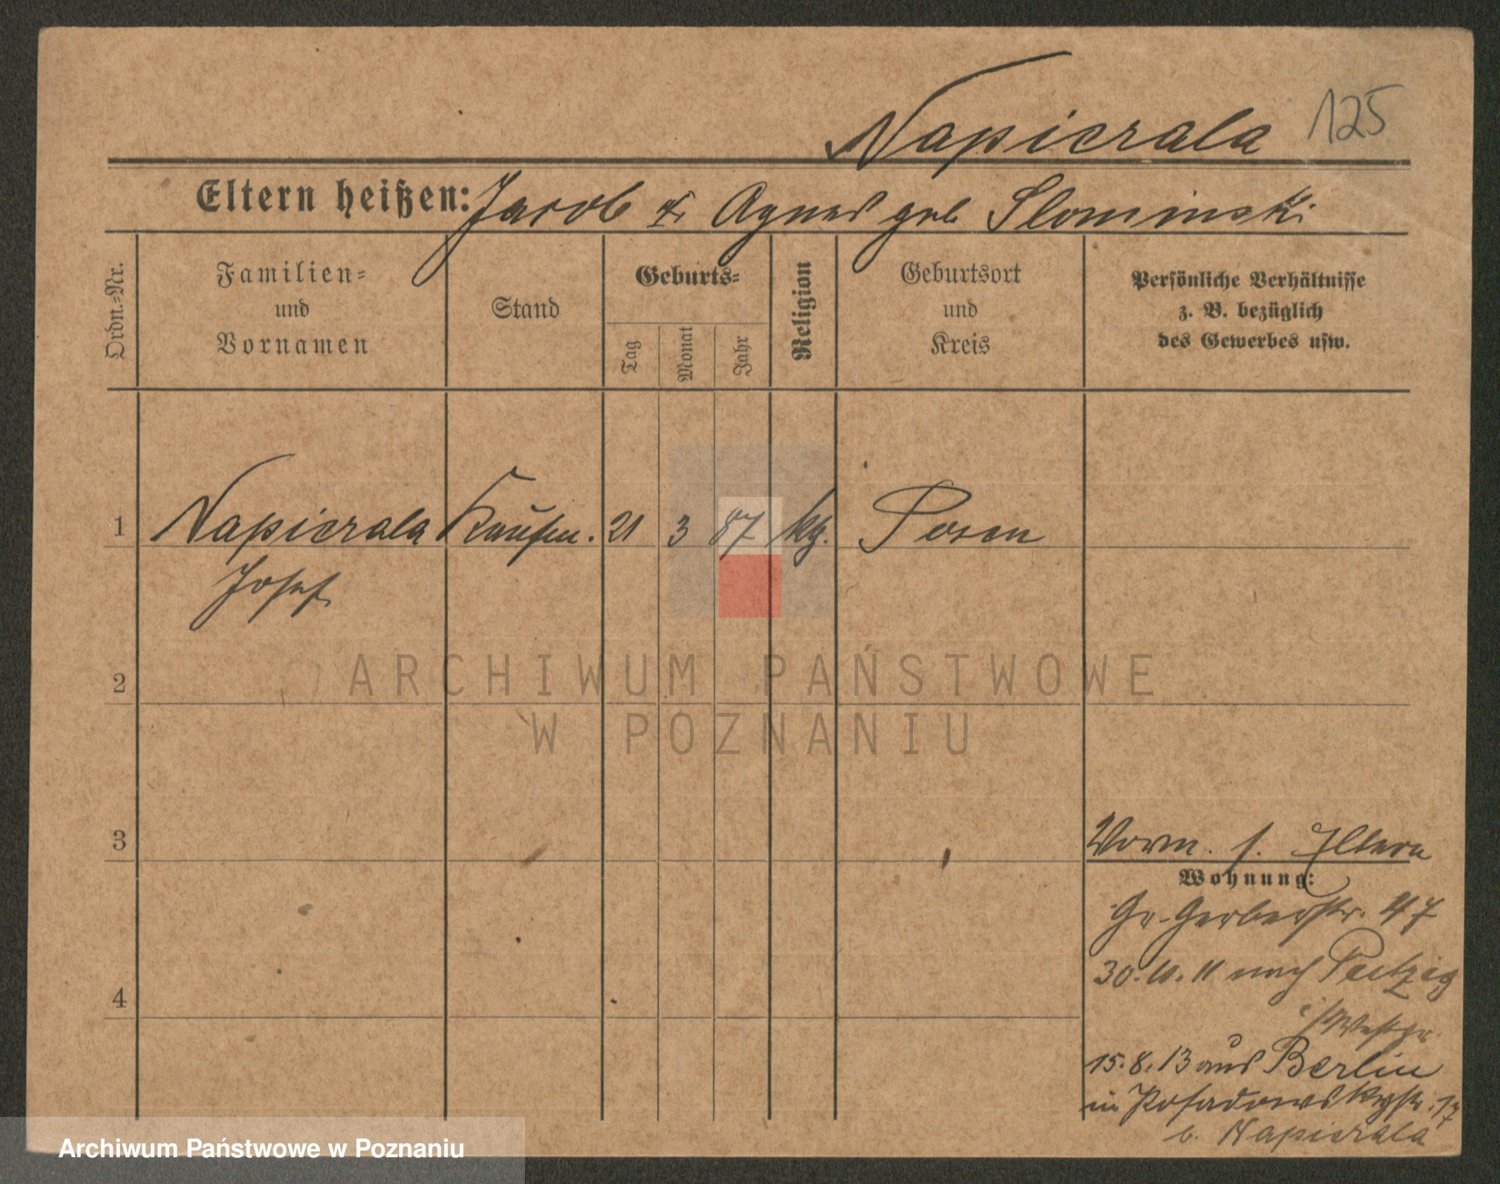 Napierala 125
Eltern heißen: Jacob & Agnes geb. Slominski
Ordn.-Nr.
Familien-
und
Vornamen
Stand
Geburts-
Tag
Monat
Jahr
Religion
Geburtsort
und
Kreis
Persönliche Verhältnisse
z. B. bezüglich
des Gewerbes usw.
1 Napierala Kaufm. 21 3 87 kg. Posen
Josef
2
3
4
Vorm. s. Eltern
Wohnung:
Gr. Gerberstr. 47
30.10.11 nach
i/Westpr.
15.8.13 aus Berlin
in Posadowskystr. 17
b. Napierala
ARCHIWUM PAŃSTWOWE
W POZNANIU
Archiwum Państwowe w Poznaniu